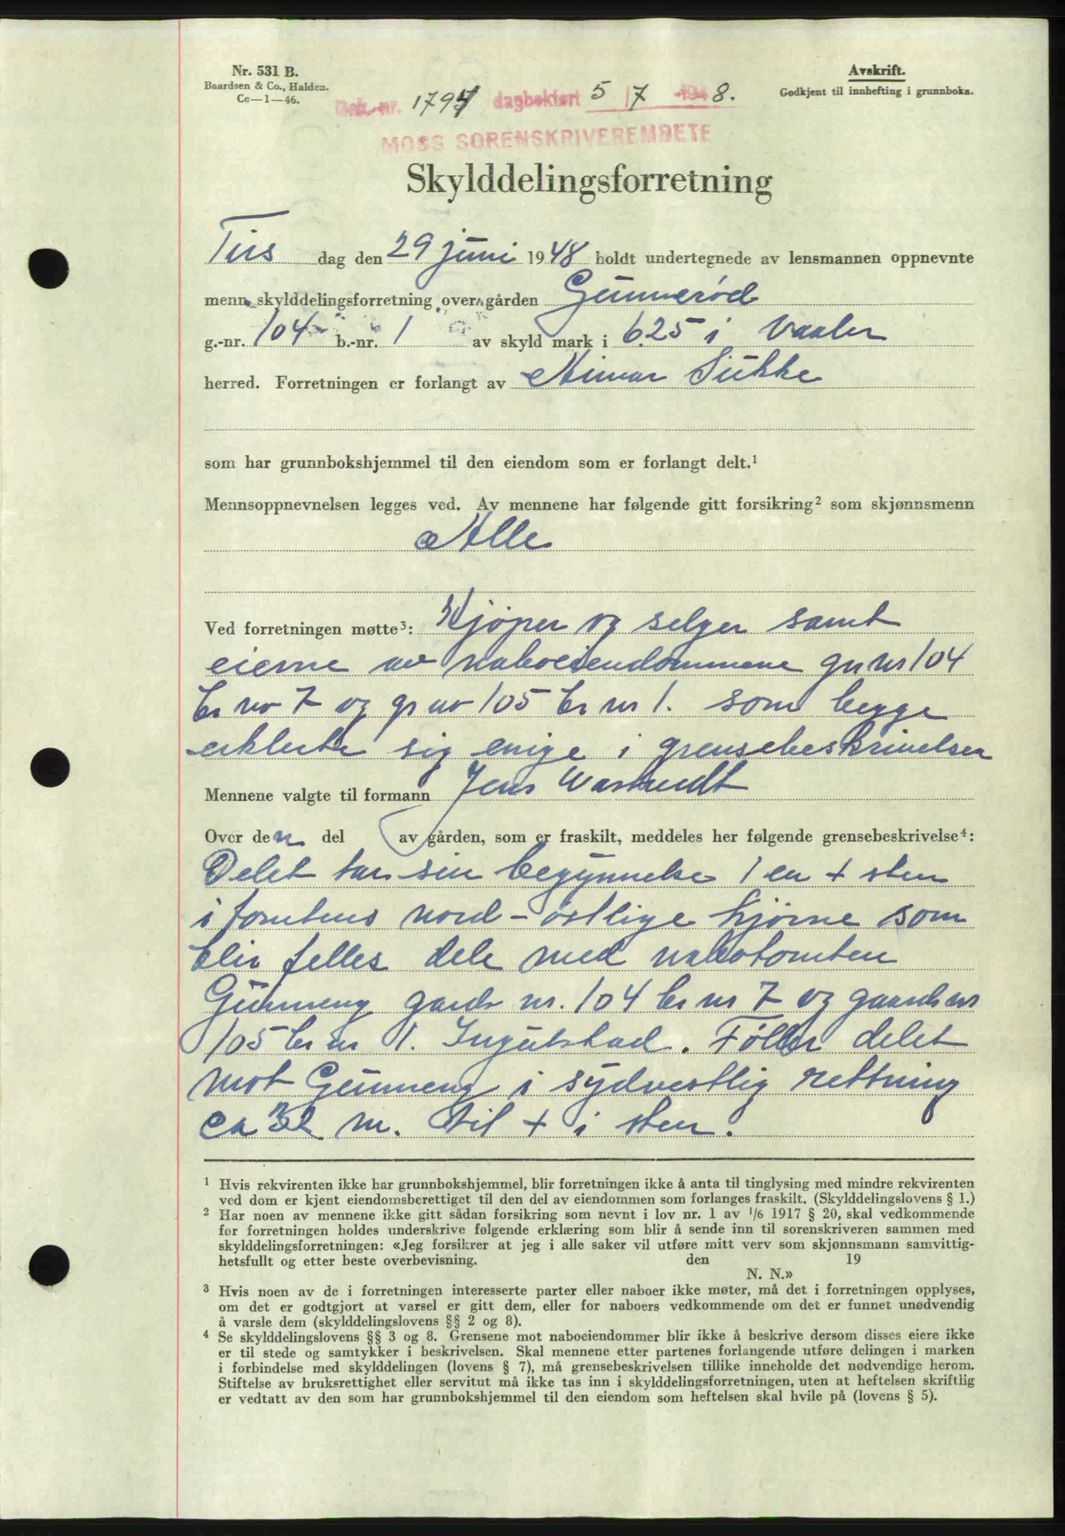 Nr. 531 B.
Baardsen & Co., Halden.
Cc—1—46.
Avskrift.
Godkjent til innhefting i grunnboka.
Dok.nr. 1797 dagbokført 5/7 1948.
MOSS SORENSKRIVEREMBETE
Skylddelingsforretning
Tirs dag den 29 juni 1948 holdt undertegnede av lensmannen oppnevnte
menn skylddelingsforretning over gården Gunnerød
g.-nr. 104 b.-nr. 1 av skyld mark i 6.25 i Vaaler
herred. Forretningen er forlangt av Aimar Sukke
som har grunnbokshjemmel til den eiendom som er forlangt delt.¹
Mennsoppnevnelsen legges ved. Av mennene har følgende gitt forsikring² som skjønnsmenn
Alle
Ved forretningen møtte³: Kjøper og selger samt
eierne av naboeiendommene gn nr 104
br nr 7 og gr nr 105 br nr 1. som begge
erklerte sig enige i grensebeskrivelsen
Mennene valgte til formann Jens
Over den del av gården, som er fraskilt, meddeles her følgende grensebeskrivelse⁴:
Delet tar sin begynnelse i en + sten
i tomtens nord-østlige hjørne som
blir felles dele med nabotomten
Gunneng gards nr. 104 br nr 7 og gaards nr
105 br nr 1. Ingulstad. Føller delet
mot Gunneng i sydvestlig rettning
ca 32 m. til + i sten.
¹ Hvis rekvirenten ikke har grunnbokshjemmel, blir forretningen ikke å anta til tinglysing med mindre rekvirenten
ved dom er kjent eiendomsberettiget til den del av eiendommen som forlanges fraskilt. (Skylddelingslovens § 1.)
² Har noen av mennene ikke gitt sådan forsikring som nevnt i lov nr. 1 av 1/6 1917 § 20, skal vedkommende
før forretningen holdes underskrive følgende erklæring som blir å sende inn til sorenskriveren sammen med
skylddelingsforretningen: «Jeg forsikrer at jeg i alle saker vil utføre mitt verv som skjønnsmann samvittig-
hetsfullt og etter beste overbevisning. den 19
N. N.»
³ Hvis noen av de i forretningen interesserte parter eller naboer ikke møter, må det i forretningen opplyses,
om det er godtgjort at varsel er gitt dem, eller for naboers vedkommende om det er funnet unødvendig
å varsle dem (skylddelingslovens §§ 2 og 8).
⁴ Se skylddelingslovens §§ 3 og 8. Grensene mot naboeiendommer blir ikke å beskrive dersom disses eiere ikke
er til stede og samtykker i beskrivelsen. Skal mennene etter partenes forlangende utføre delingen i marken
i forbindelse med skylddelingen (lovens § 7), må grensebeskrivelsen tillike inneholde det nødvendige herom.
Stiftelse av bruksrettighet eller servitut må ikke tas inn i skylddelingsforretningen, uten at heftelsen skriftlig
er vedtatt av den som har grunnbokshjemmel til den eiendom som heftelsen skal hvile på (lovens § 5).